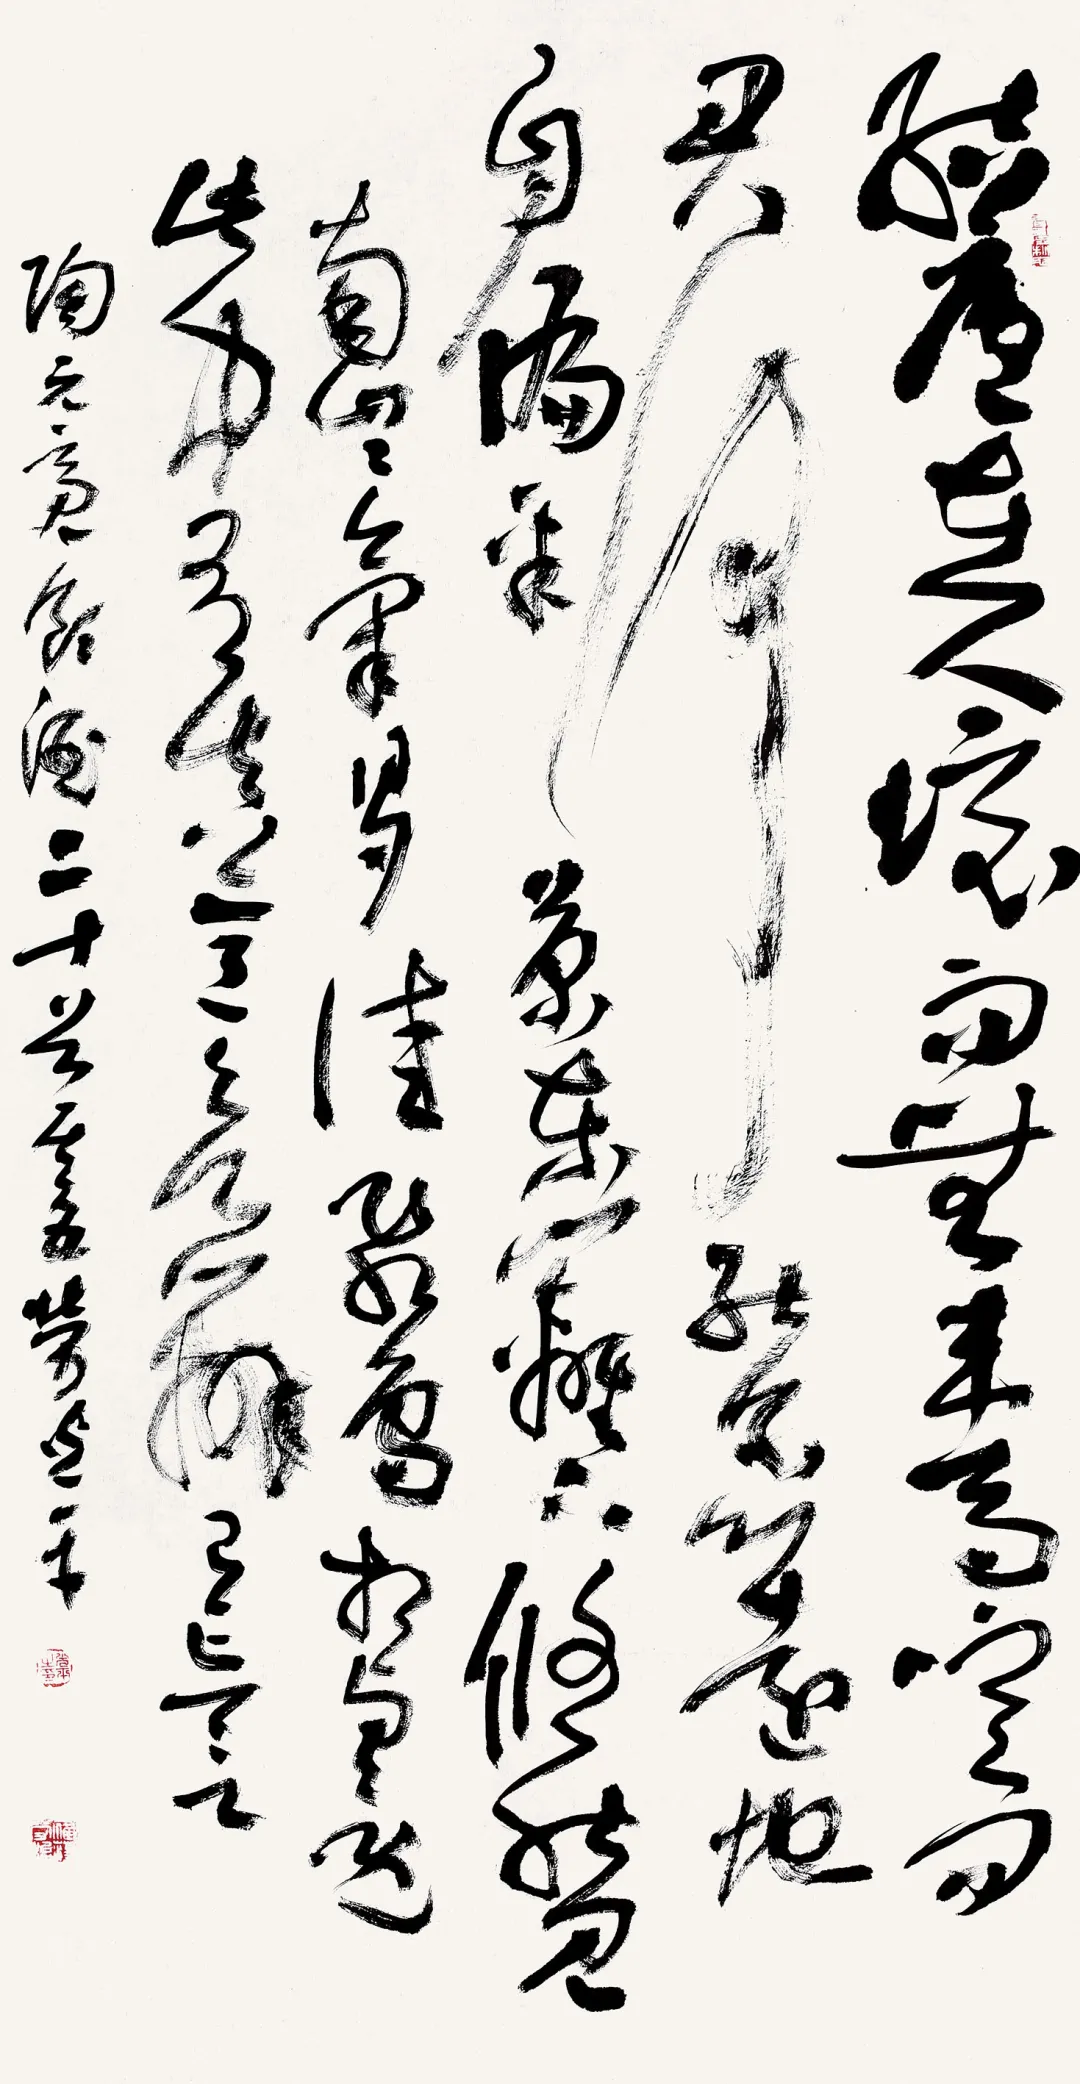 結廬在人境而無車馬喧問
君何能爾心遠地
自偏采菊東籬下悠然見
南山々氣日夕佳飛鳥相與還
此中有真意欲辨已忘言
陶元亮飲酒二十首其五